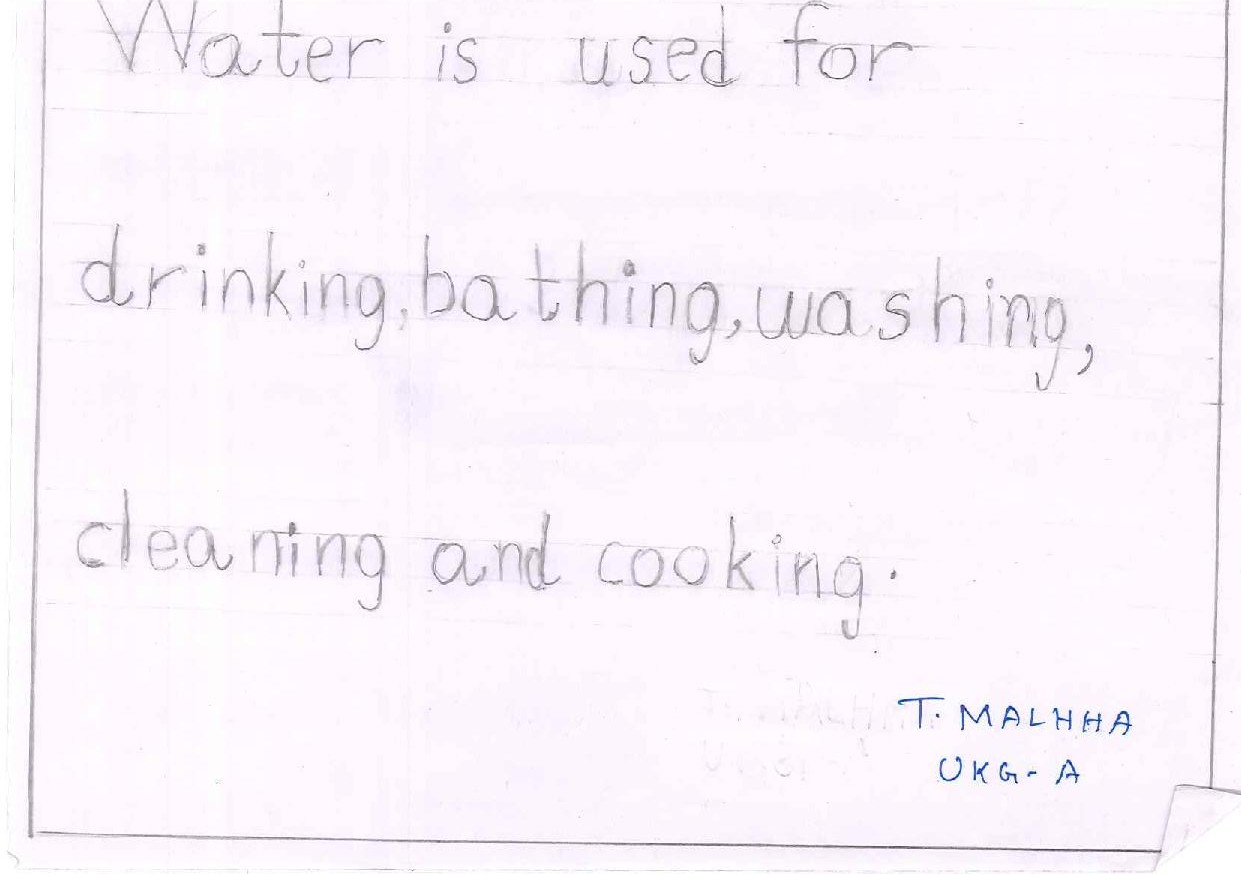 Water is used for
drinking, bathing, washing,
cleaning and cooking.
T. MALHHA
UKG- A